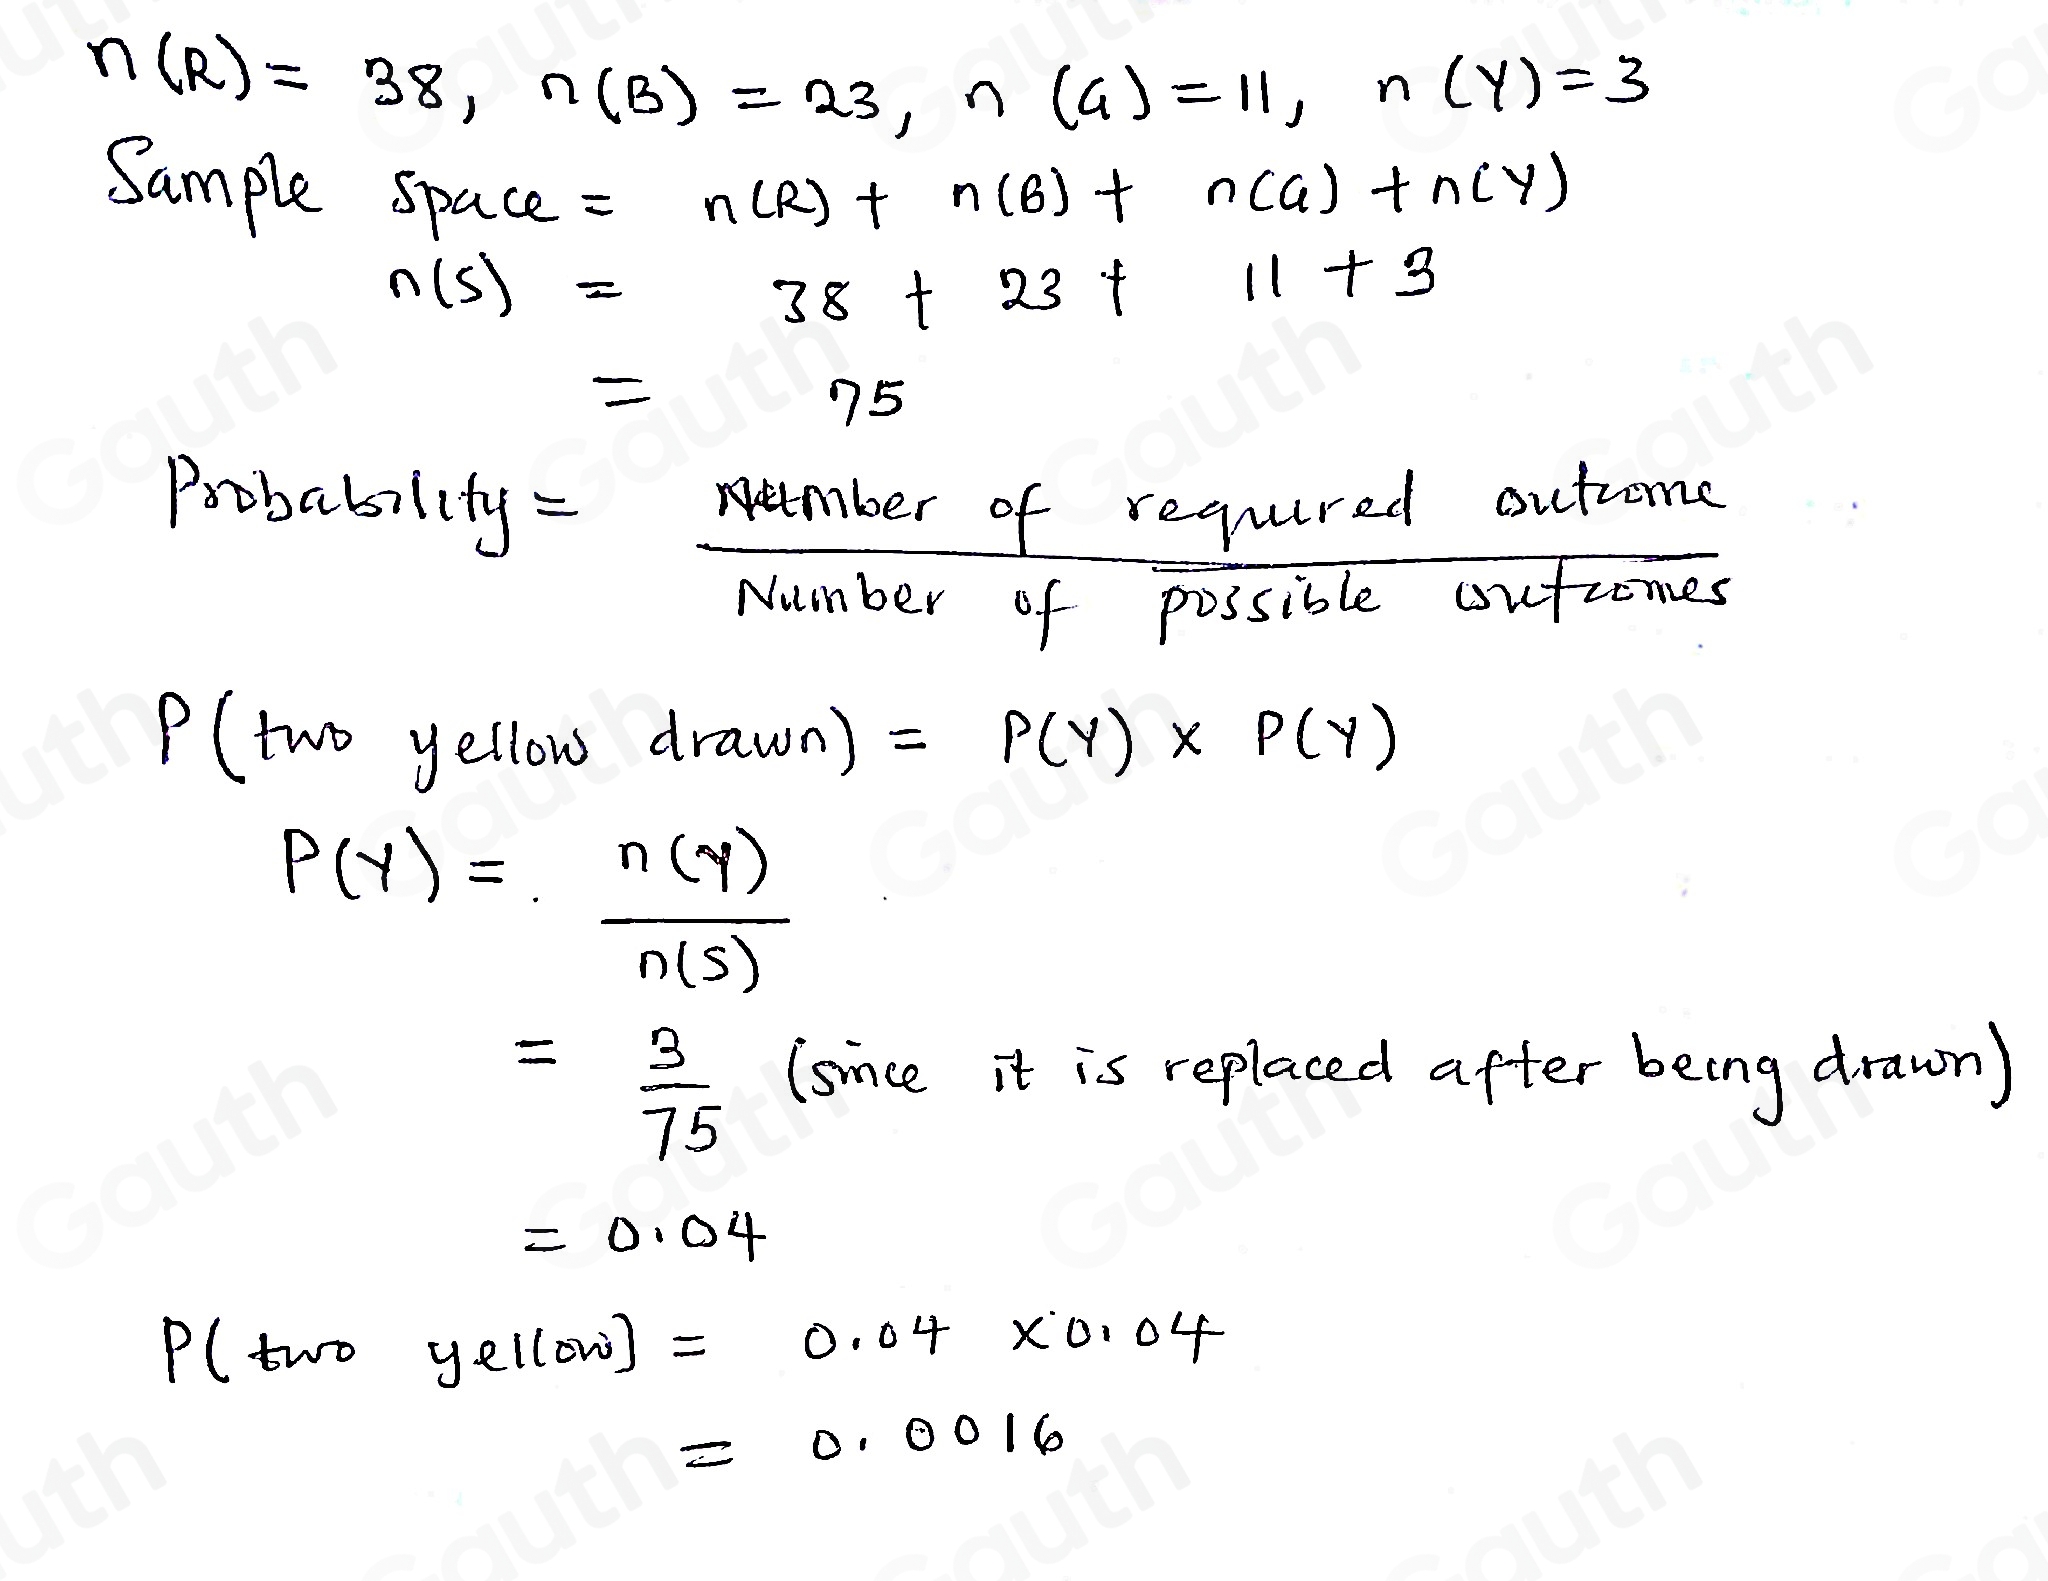 n(R) = 38, n(B) = 23, n(G) = 11, n(Y) = 3
Sample space = n(R) + n(B) + n(G) + n(Y)
n(S) = 38 + 23 + 11 + 3
= 75
Probability = Number of required outcome
Number of possible outcomes
P(two yellow drawn) = P(Y) x P(Y)
P(Y) = n(Y)
n(S)
= 3
75 (since it is replaced after being drawn)
= 0.04
P(two yellow) = 0.04 x 0.04
= 0.0016